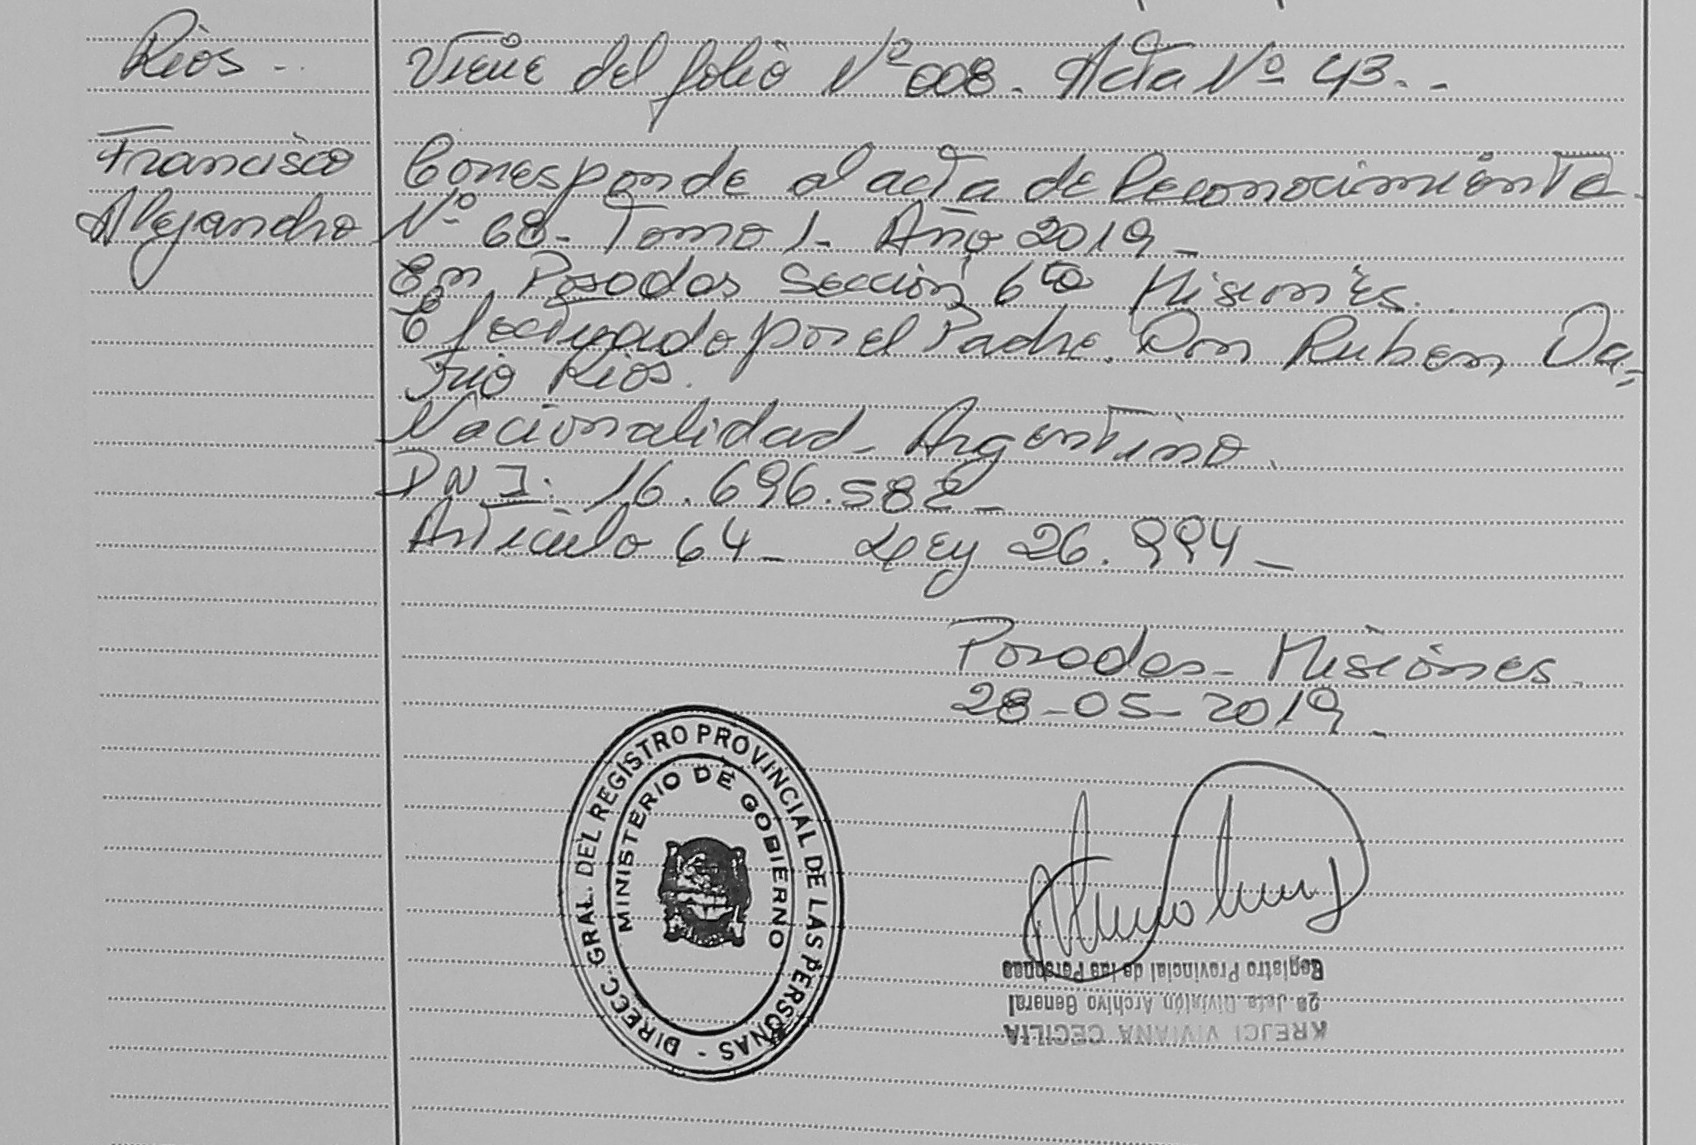 Rios.-
Viene del folio Nº 008. Acta Nº 43.-
Francisco
Alejandro
Corresponde al acta de Reconocimiento
Nº 68- Tomo 1- Año 2019-
En Posadas Sección 6ta Misiones.
Efectuado por el Padre. Don Ruben Da=
rio Rios.
Nacionalidad- Argentino.
DNI. 16.696.582-
Articulo 64- Ley 26.994-
Posadas- Misiones.
28-05-2019-
DIRECC. GRAL. DEL REGISTRO PROVINCIAL DE LAS PERSONAS -
MINISTERIO DE GOBIERNO
KREJCI VIVIANA CECILIA
2ª Jefa. División Archivo General
Registro Provincial de las Personas